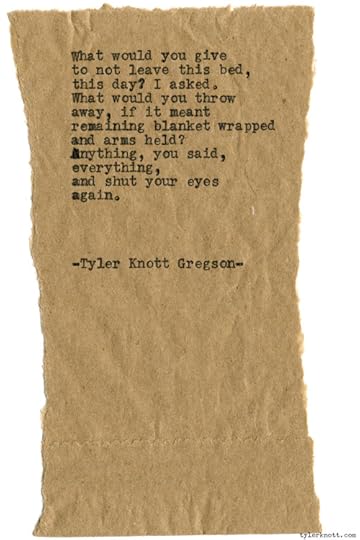 What would you give
to not leave this bed,
this day? I asked.
What would you throw
away, if it meant
remaining blanket wrapped
and arms held?
Anything, you said,
everything,
and shut your eyes
again.
-Tyler Knott Gregson-
tylerknott.com